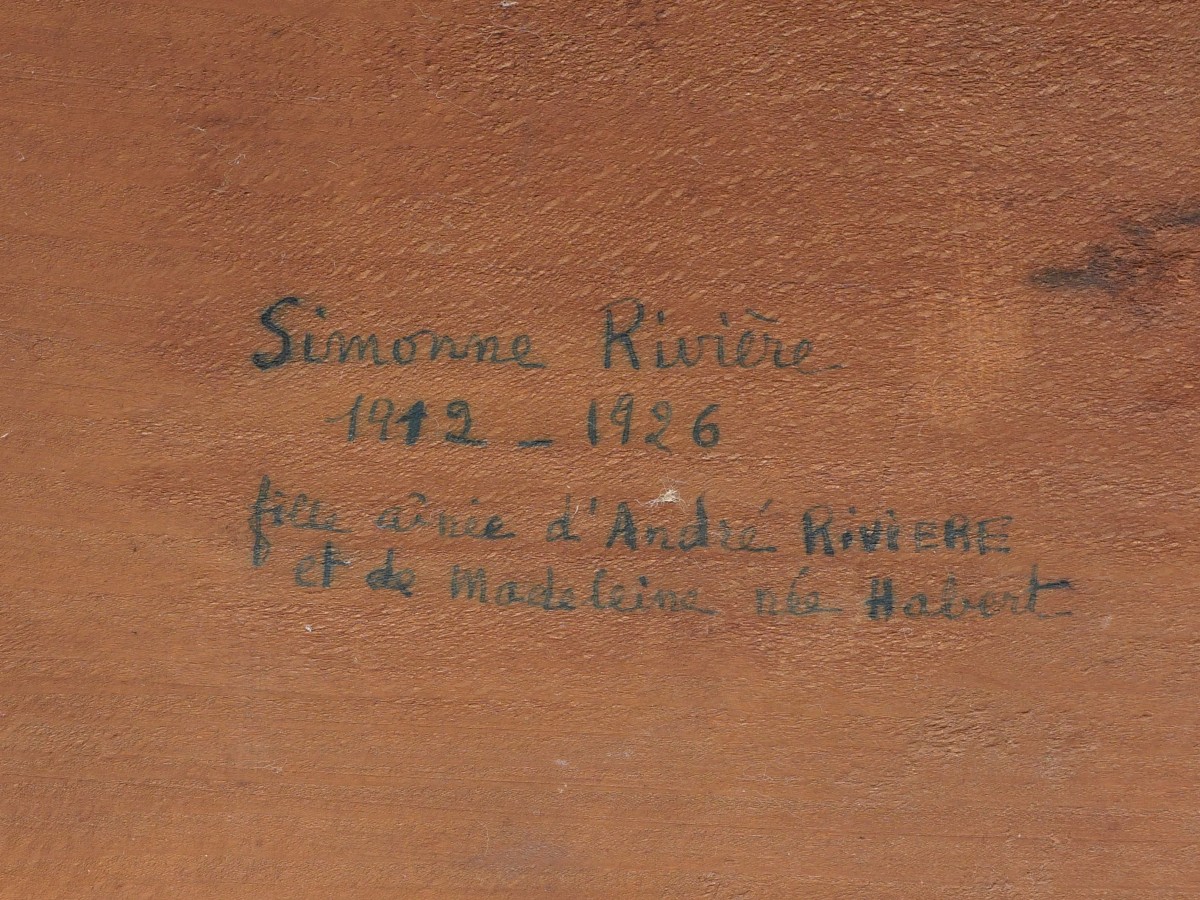 Simonne Rivière
1912 - 1926
fille aînée d'André RIVIERE
et de Madeleine née Habert